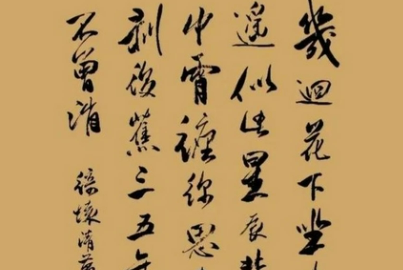 幾迴花下坐
遙似此星辰非
中宵纏綿思
剝後蕉三五年
不曾消
綺懷清黃